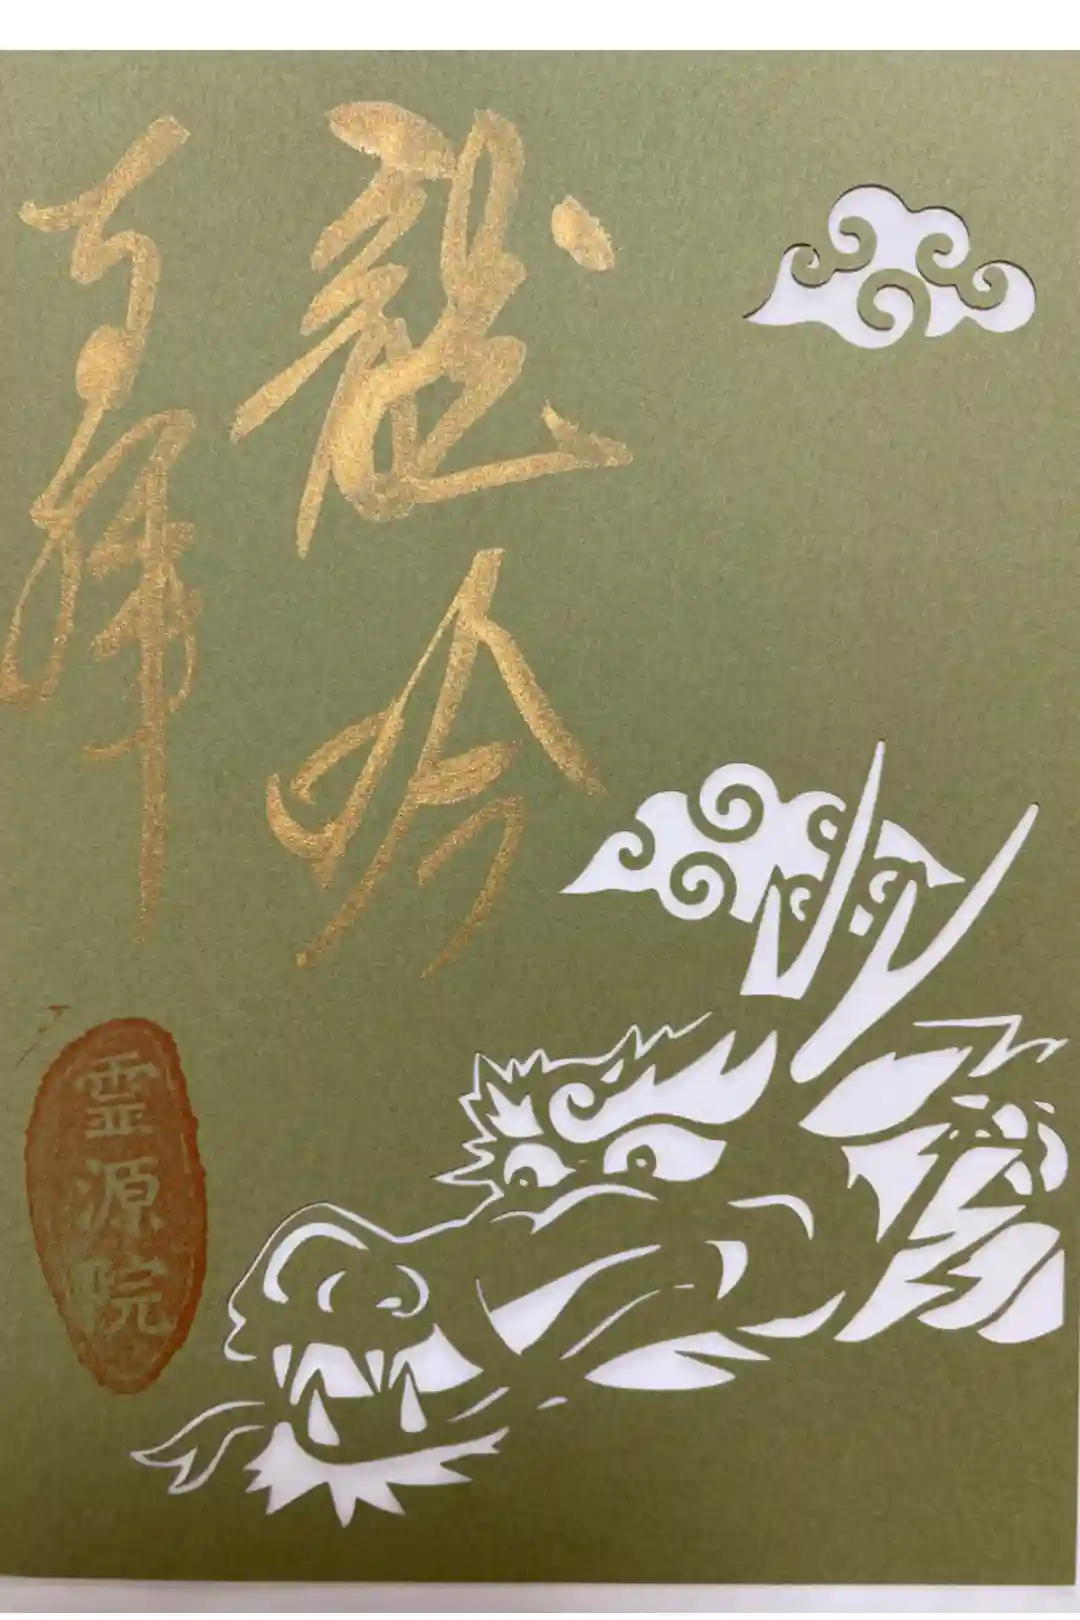 龍吟
拝
霊源院